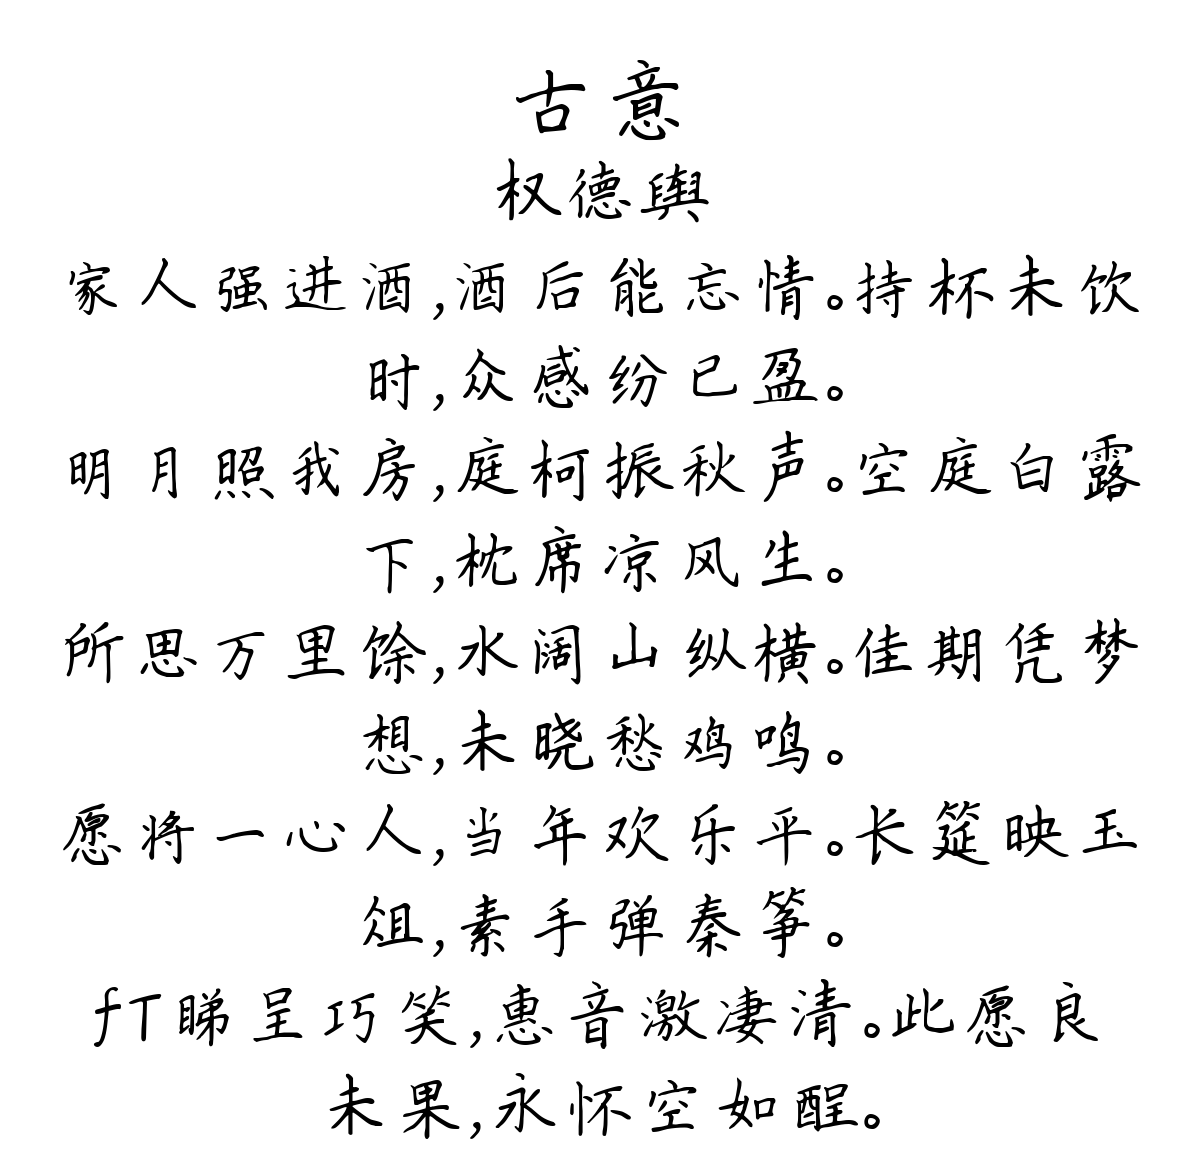 古意
权德舆
家人强进酒,酒后能忘情。持杯未饮
时,众感纷已盈。
明月照我房,庭柯振秋声。空庭白露
下,枕席凉风生。
所思万里馀,水阔山纵横。佳期凭梦
想,未晓愁鸡鸣。
愿将一心人,当年欢乐平。长筵映玉
俎,素手弹秦筝。
fT睇呈巧笑,惠音激凄清。此愿良
未果,永怀空如酲。